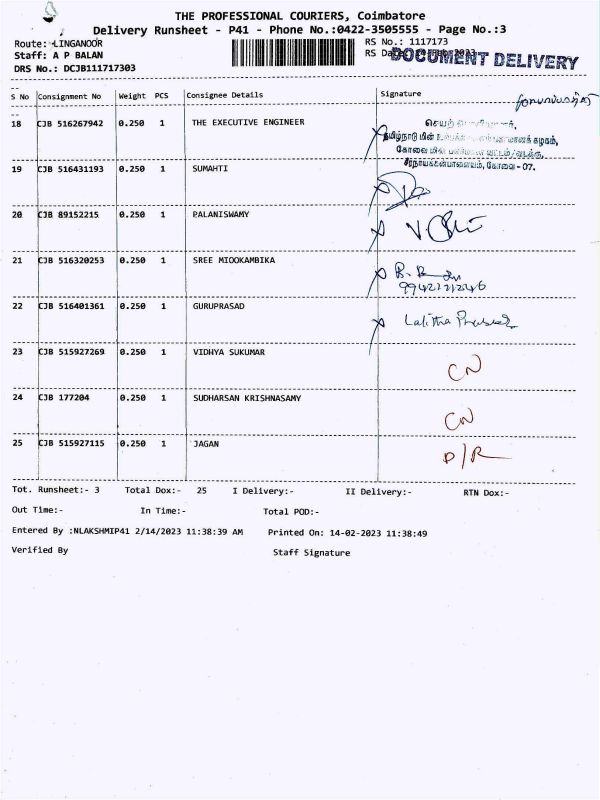 THE PROFESSIONAL COURIERS, Coimbatore
Delivery Runsheet - P41 - Phone No.:0422-3505555 - Page No.:3
Route: LINGANOOR
RS No.: 1117173
Staff: A P BALAN
RS Date: 2023
DOCUMENT DELIVERY
DRS No.: DCJB111717303
S No Consignment No Weight PCS Consignee Details Signature
18 CJB 516267942 0.250 1 THE EXECUTIVE ENGINEER
தமிழ்நாடு மின் கழகம்,
கோவை மின்
சீரநாயக்கன்பாளையம், கோவை - 07.
19 CJB 516431193 0.250 1 SUMAHTI
20 CJB 89152215 0.250 1 PALANISWAMY
21 CJB 516320253 0.250 1 SREE MIOOKAMBIKA
22 CJB 516401361 0.250 1 GURUPRASAD
Lalitha Prasad
23 CJB 515927269 0.250 1 VIDHYA SUKUMAR
CN
24 CJB 177204 0.250 1 SUDHARSAN KRISHNASAMY
CN
25 CJB 515927115 0.250 1 JAGAN
D/R
Tot. Runsheet:- 3 Total Dox:- 25 I Delivery:- II Delivery:- RTN Dox:-
Out Time:- In Time:- Total POD:-
Entered By :NLAKSHMIP41 2/14/2023 11:38:39 AM Printed On: 14-02-2023 11:38:49
Verified By Staff Signature